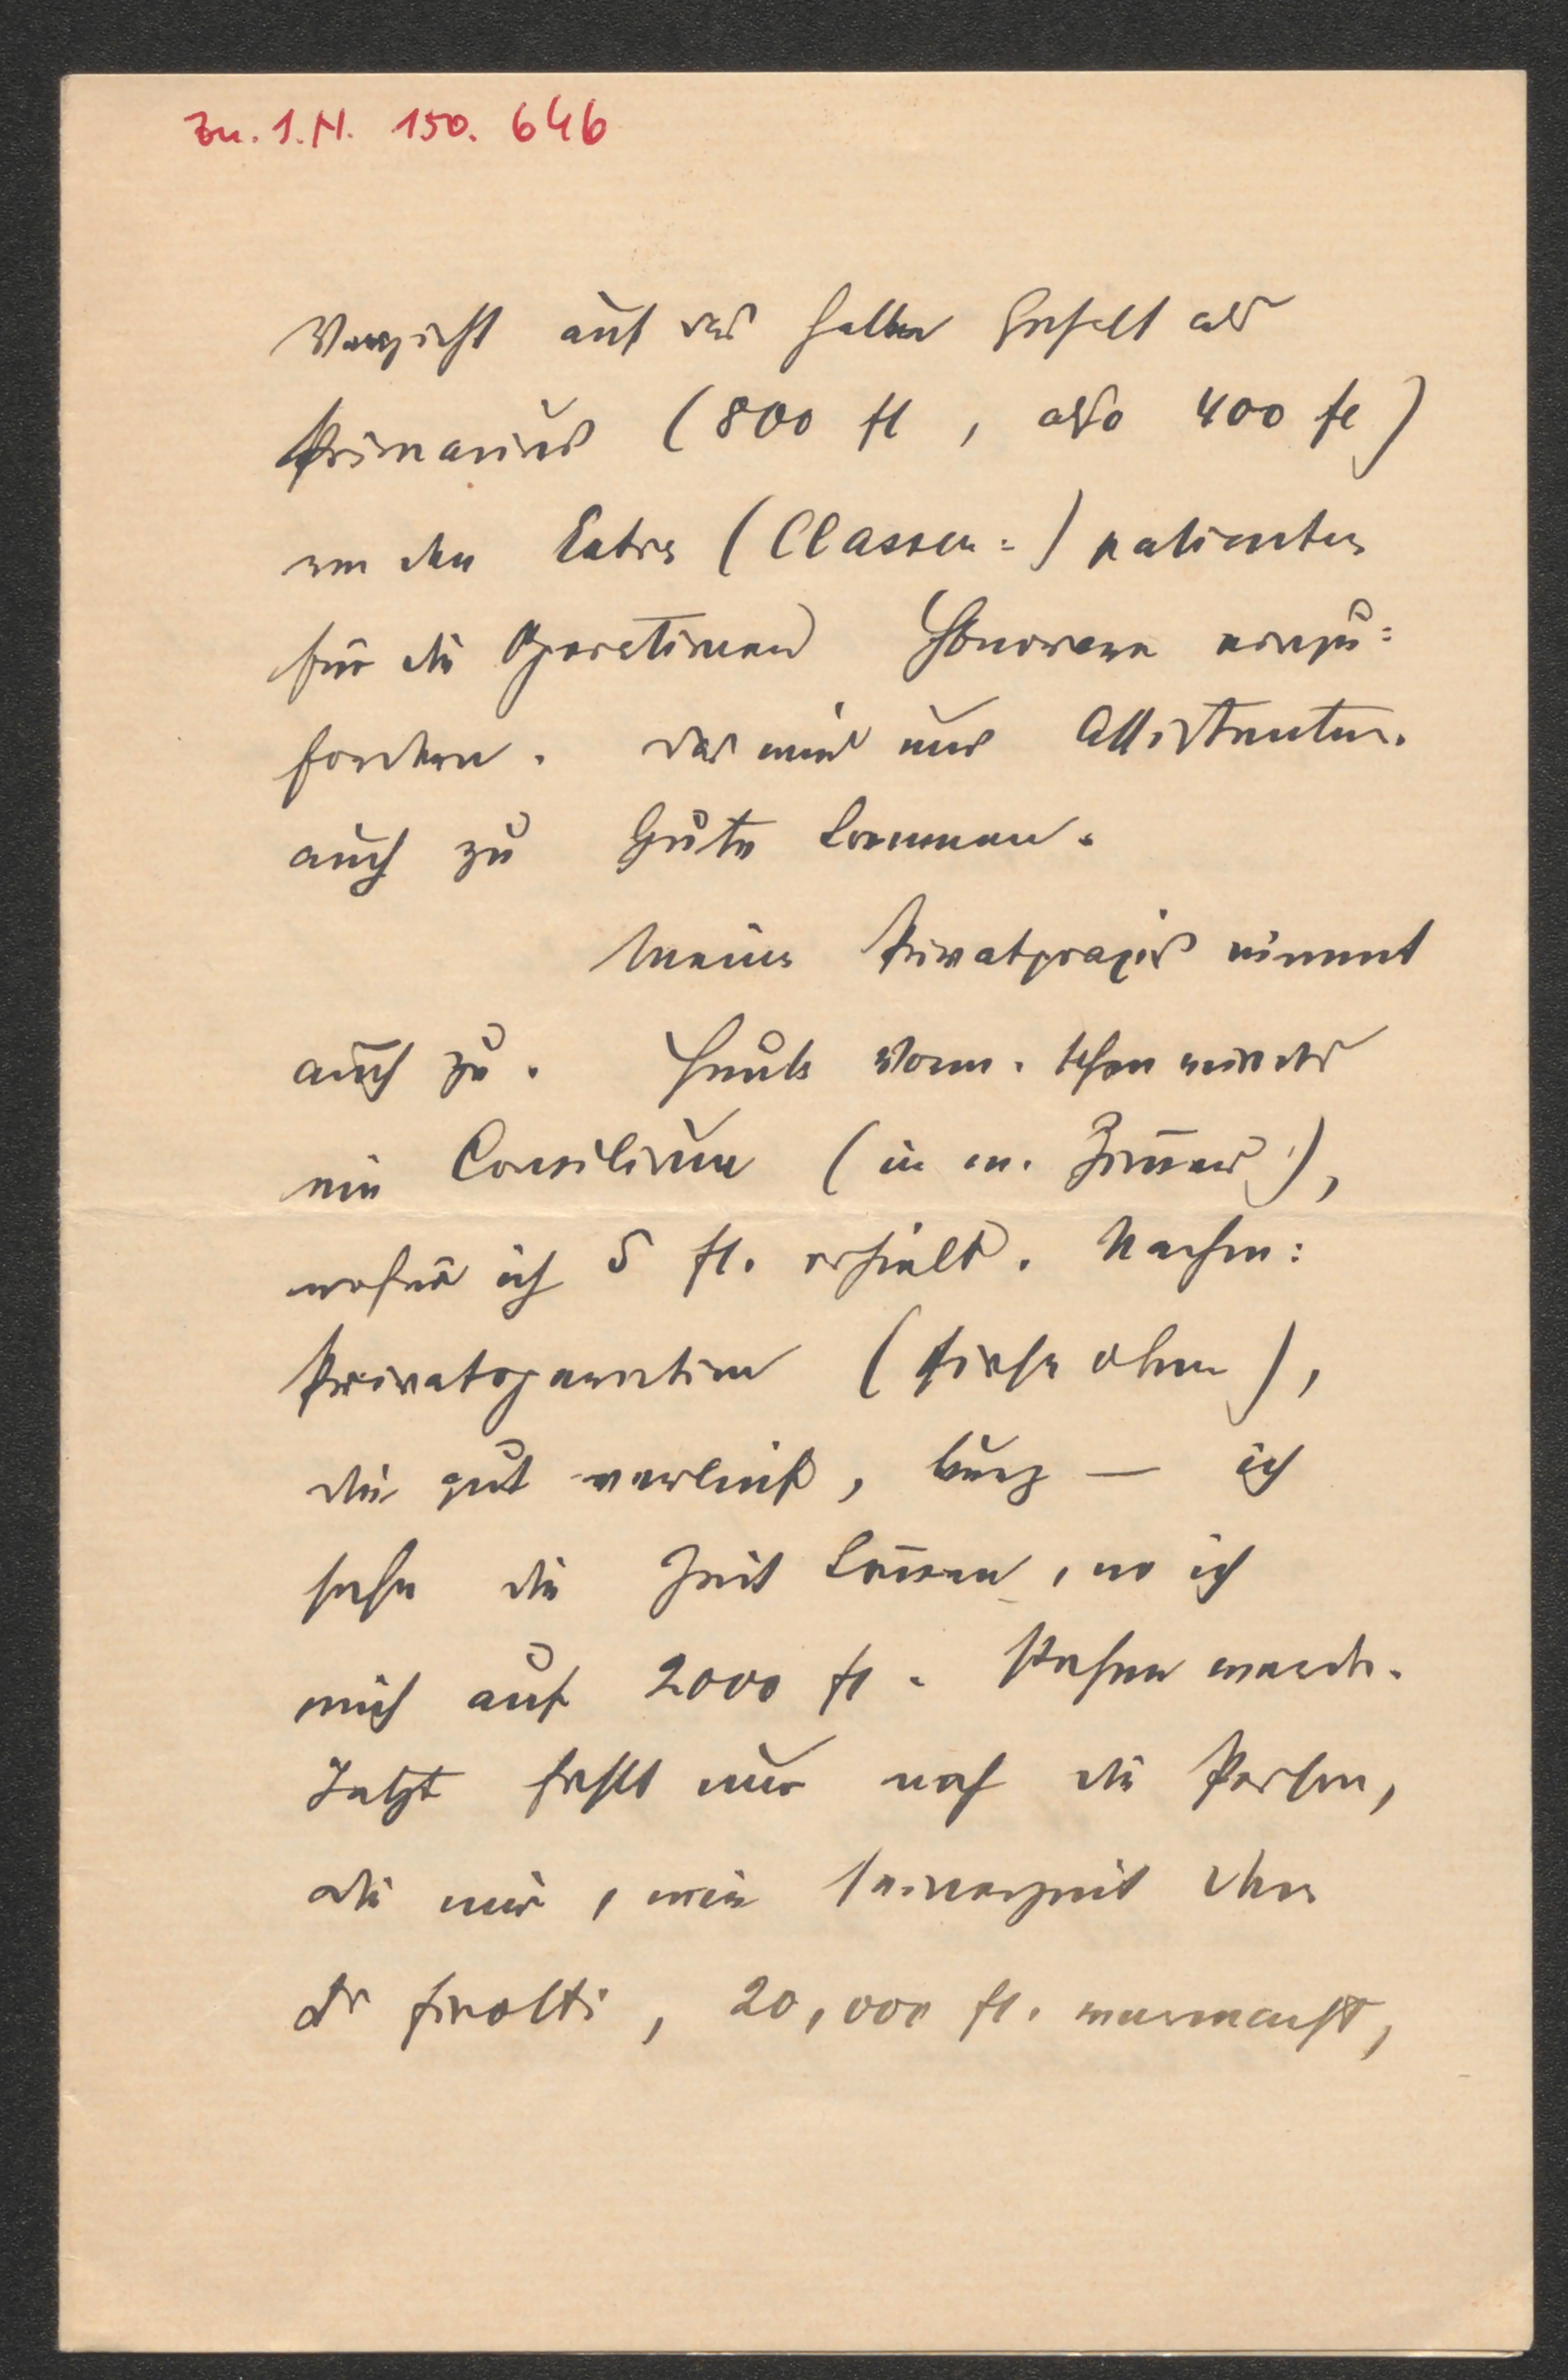 Zu. I.N. 150.646
Verzicht auf das halbe Gehalt als
Primarius (800 fl, also 400 fl)
von den Extra (Classen=) patienten
für die Operationen Honorare einzu=
fordern. Das wird uns Assistenten
auch zu Gute kommen.
Meine Privatpraxis nimmt
auch zu. Heute Vorm. schon wieder
ein Consilium (in m. Zimmer),
wofür ich 5 fl. erhielt. Nachm:
Privatoperation (siehe oben),
die gut verlief, kurz — ich
sehe die Zeit kommen, wo ich
mich auf 2000 fl. stehen werde.
Jetzt fehlt nur noch die Person,
die mir, wie seinerzeit dem
Dr 20,000 fl. vermacht,